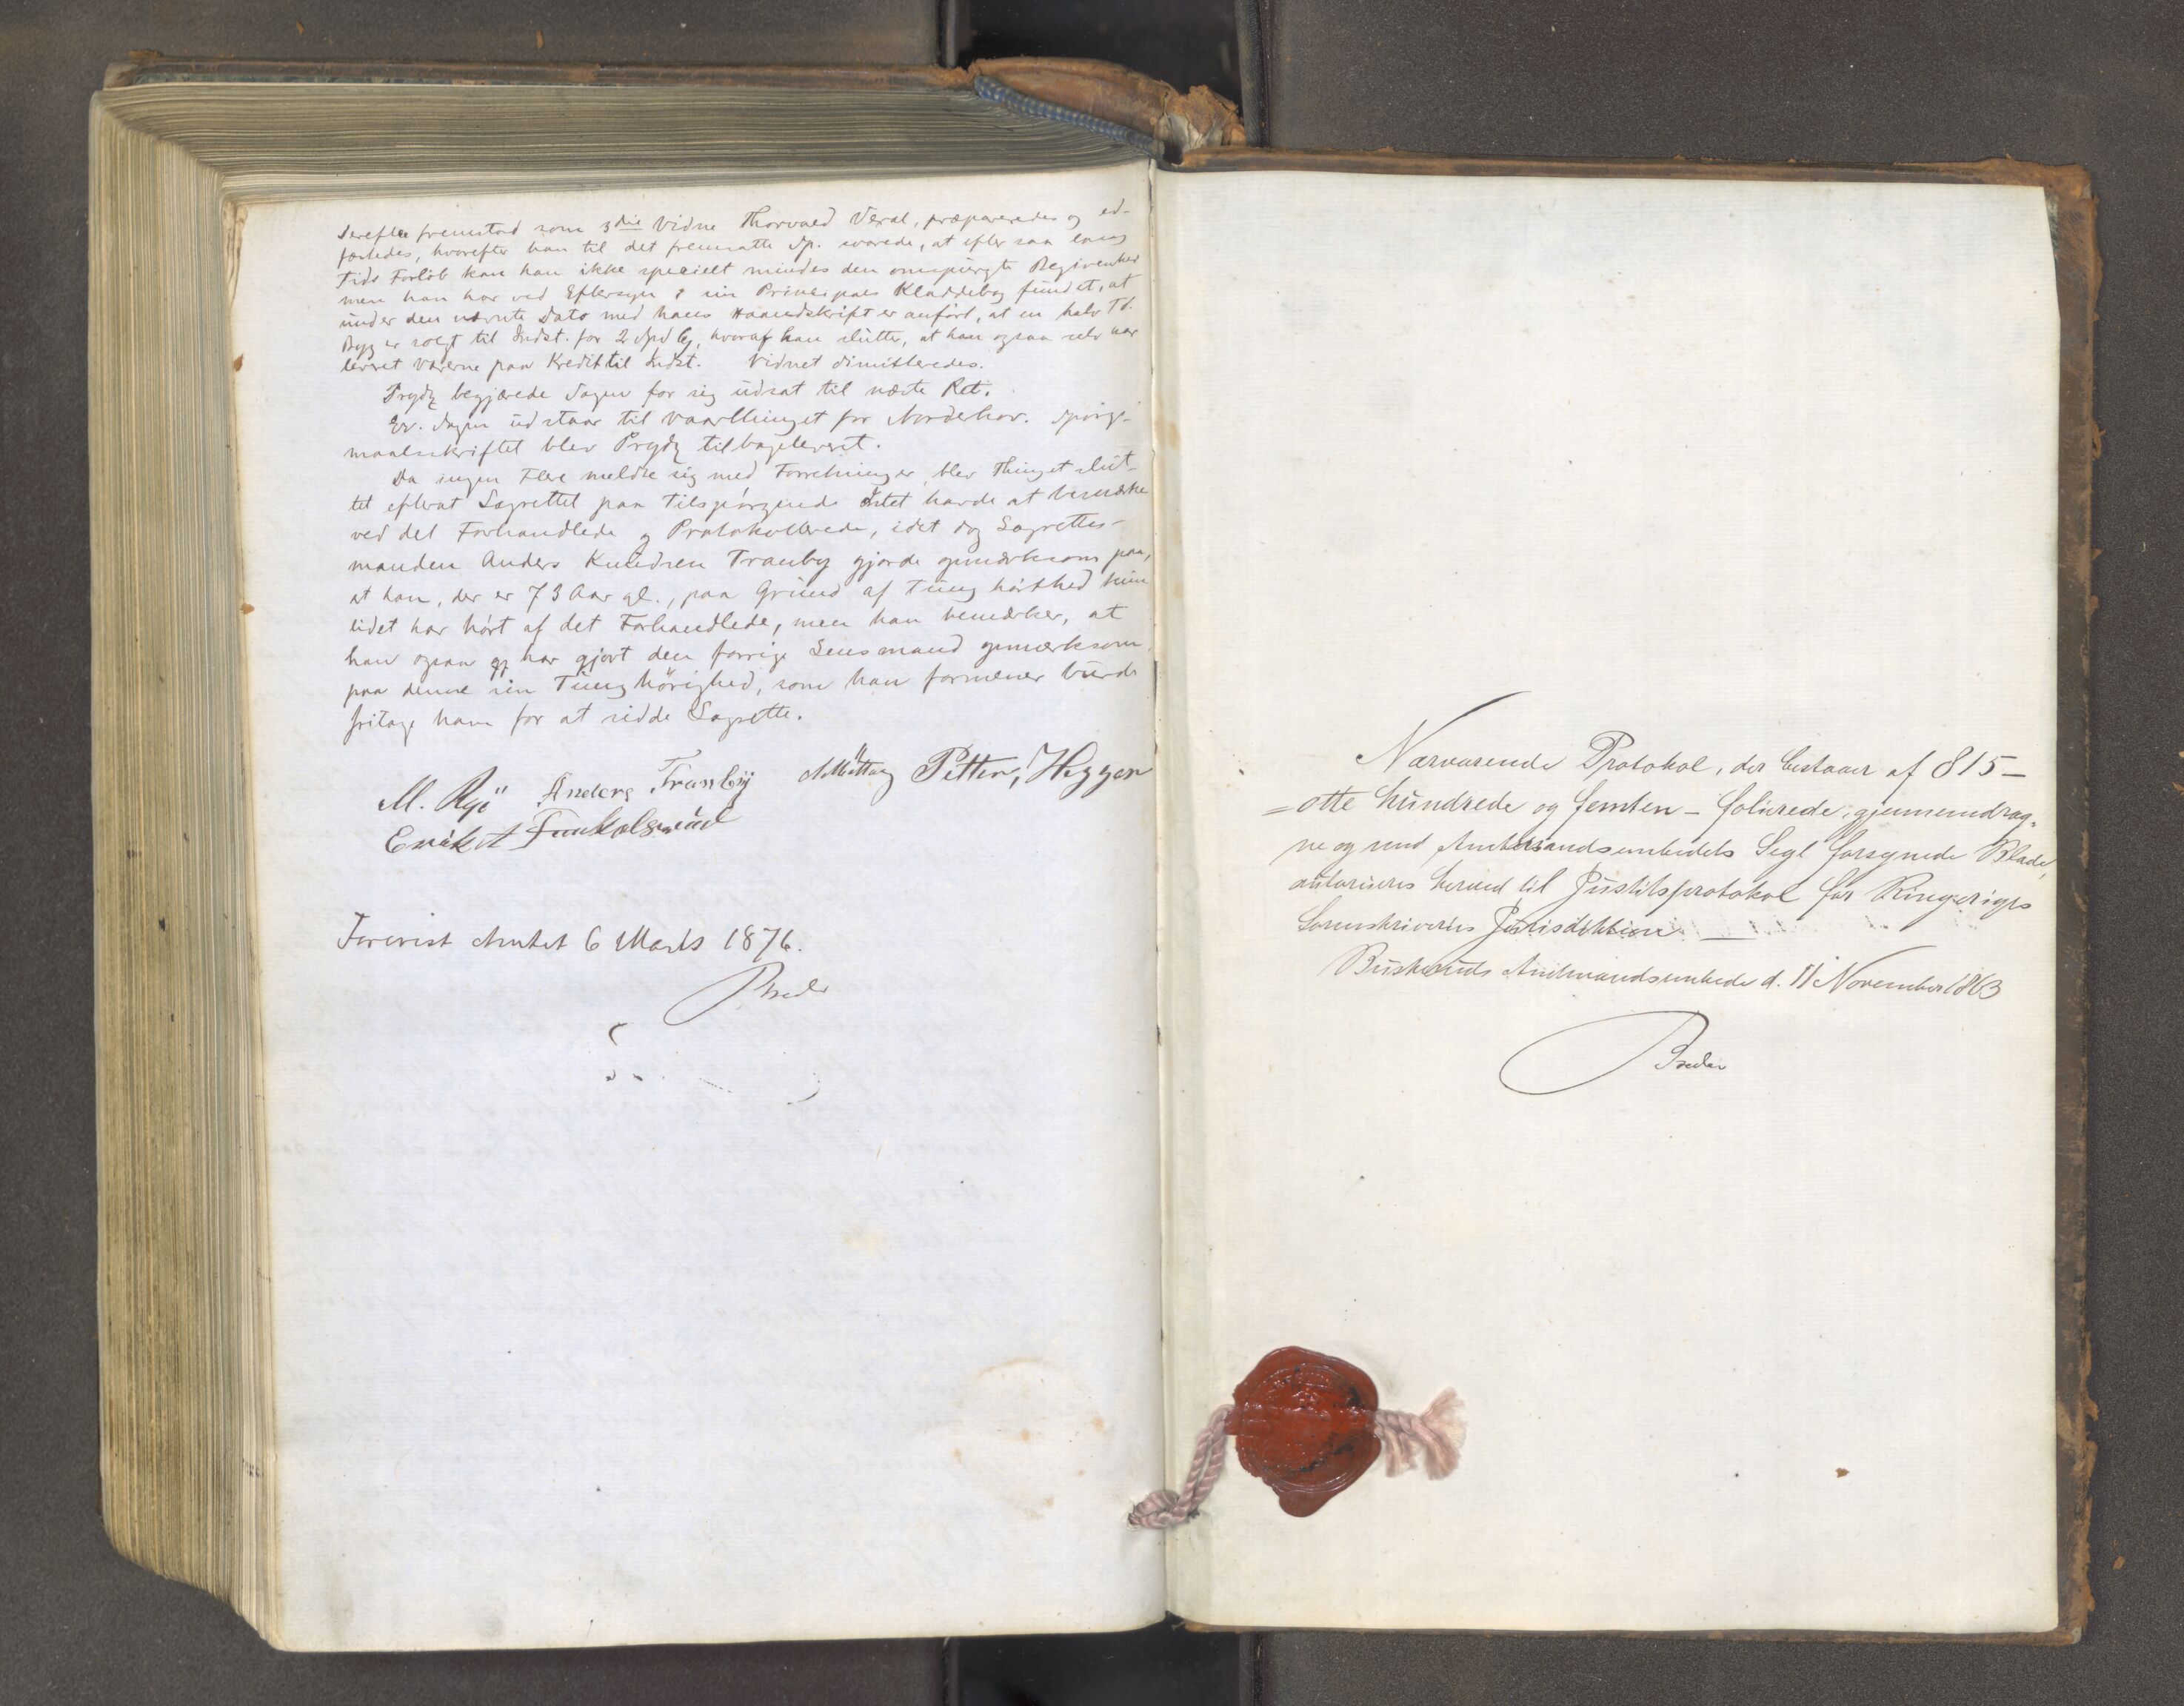 Derefter fremstod som 3die Vidne Thorvald Veral, præpareredes og ed-
fæstedes, hvorefter han til det fremsatte Sp. svarede, at efter saa lang
Tids Forløb kan han ikke specielt mindes den omspurgte Begivenhed
men han har ved Eftersyn i sin Principals Kladdebog fundet, at
under den nævnte Dato med hans Haandskrift er anført, at en halv Td.
Byg er solgt til Indst. for 2 Spd, hvoraf han slutter, at han ogsaa selv har
leveret Varerne paa Kredit til Indst. Vidnet dimitteredes.
Prydz begjærede Sagen for sig udsat til næste Ret.
Er. Sagen udstaar til Vaarthinget for Norderhov. Spörgs-
maalsskriftet blev Prydz tilbageleveret.
Da ingen Flere meldte sig med Forretninger, blev Thinget slut-
tet efterat Lagrettet paa Tilspørgende Intet havde at bemærke
ved det Forhandlede og Protokollerede, idet dog Lagrettes-
manden Anders Knudsen Tranby gjorde opmærksom paa,
at han, der er 73 Aar gl., paa Grund af Tunghørthed kun
lidet har hørt af det Forhandlede, men han bemærker, at
han ogsaa har gjort den forrige Lensmand opmærksom
paa denne sin Tunghörighed, som han formener burde
fritage ham for at sidde Lagrette.
M. Ryé Anders Tranby Petter Heggen
Erik
Forevist Amtet 6 Marts 1876.
Breder
Nærværende Protokol, der bestaaer af 815 -
= otte hundrede og femten - folierede, gjennemdrag-
ne og med Amtmandsembedets Segl forsynede Blade,
autoriseres herved til Justitsprotokol for Ringeriges
Sorenskriveries Jurisdiktion. —
Buskeruds Amtmandsembede d. 11 November 1863
Breder